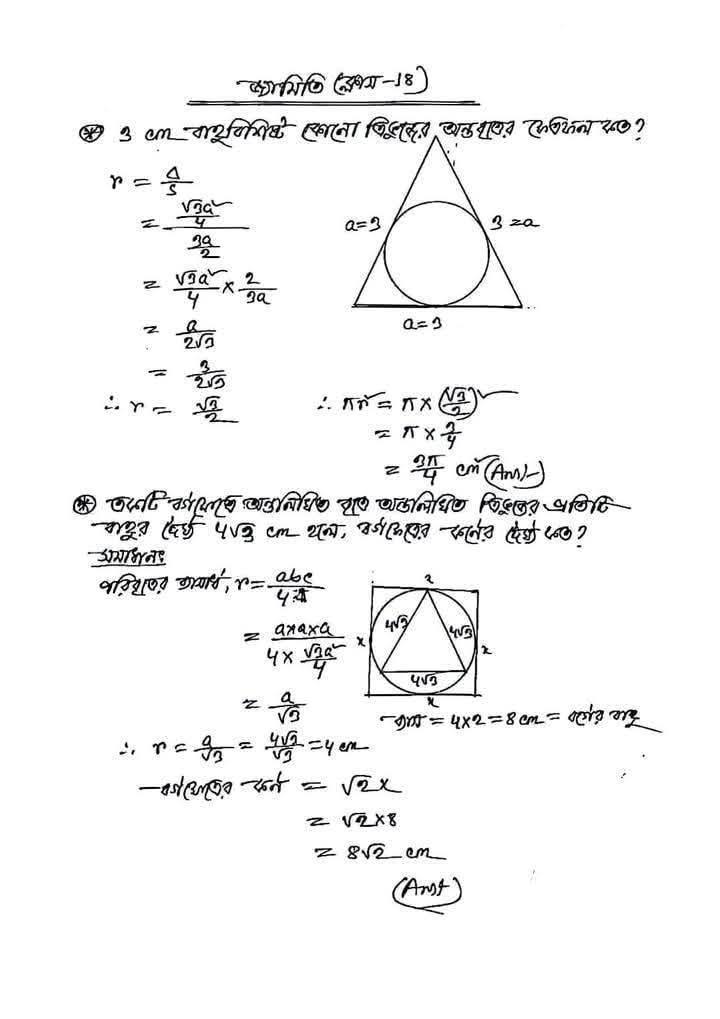 জ্যামিতি (ক্লাস-18)
* 3 cm বাহুবিশিষ্ট কোনো ত্রিভুজের অন্তবৃত্তের ক্ষেত্রফল কত?
r = Δ/s
= (√3a²/4)/(3a/2)
a=3
3=a
a=3
= √3a²/4 × 2/3a
= a/2√3
= 3/2√3
∴ r = √3/2
∴ πr² = π×(√3/2)²
= π × 3/4
= 3π/4 cm² (Ans)
* একটি বর্গক্ষেত্রে অন্তর্লিখিত বৃত্তে অন্তর্লিখিত ত্রিভুজের প্রতিটি
বাহুর দৈর্ঘ্য 4√3 cm হলে, বর্গক্ষেত্রের কর্ণের দৈর্ঘ্য কত?
সমাধানঃ
পরিবৃত্তের ব্যাসার্ধ, r = abc/4Δ
= a×a×a/(4 × √3a²/4)
= a/√3
x
4√3
4√3
x
x
4√3
x
ব্যাস = 4×2 = 8 cm = বর্গের বাহু
∴ r = a/√3 = 4√3/√3 = 4 cm
বর্গক্ষেত্রের কর্ণ = √2x
= √2×8
= 8√2 cm
(Ans)